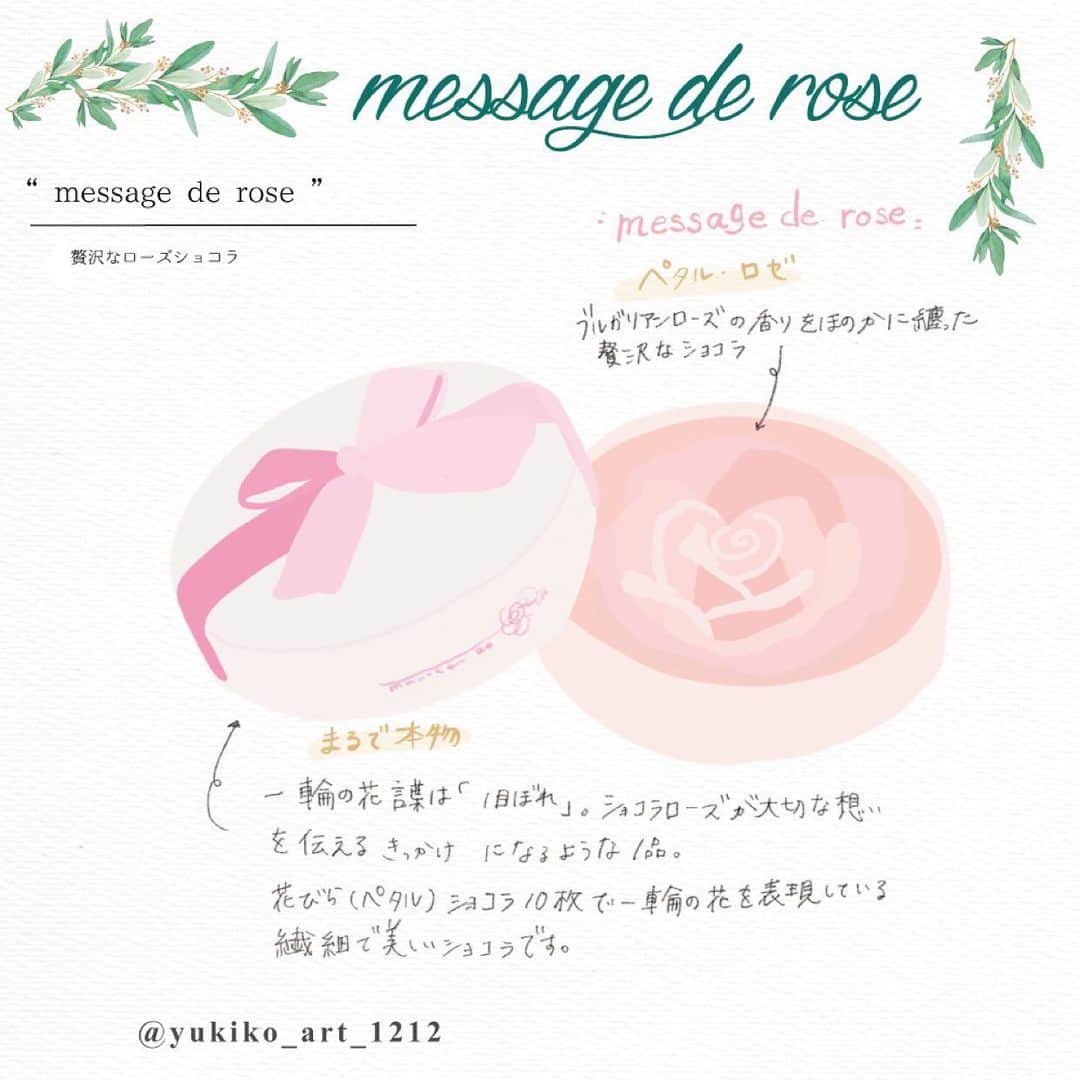 message de rose
“ message de rose ”
贅沢なローズショコラ
message de rose
ペタル・ロゼ
ブルガリアンローズの香りをほのかに纏った
贅沢なショコラ
まるで本物
一輪の花言葉は「1目ぼれ」。ショコラローズが大切な想い
を伝えるきっかけ になるような1品。
花びら(ペタル)ショコラ10枚で一輪の花を表現している
繊細で美しいショコラです。
@yukiko_art_1212